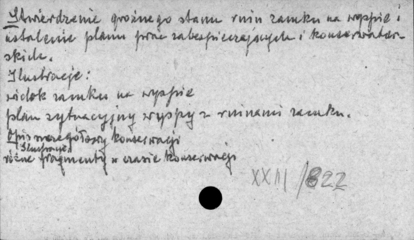 Stwierdzenie groźnego stanu ruin zamku na wyspie i
ustalenie planu prac zabezpieczających i konserwator-
skich.
Ilustracje:
widok zamku na wyspie
plan sytuacyjny wyspy z ruinami zamku.
Opis szczegółowy konserwacji
Ilustracje:
różne fragmenty w czasie konserwacji
XXIII/822